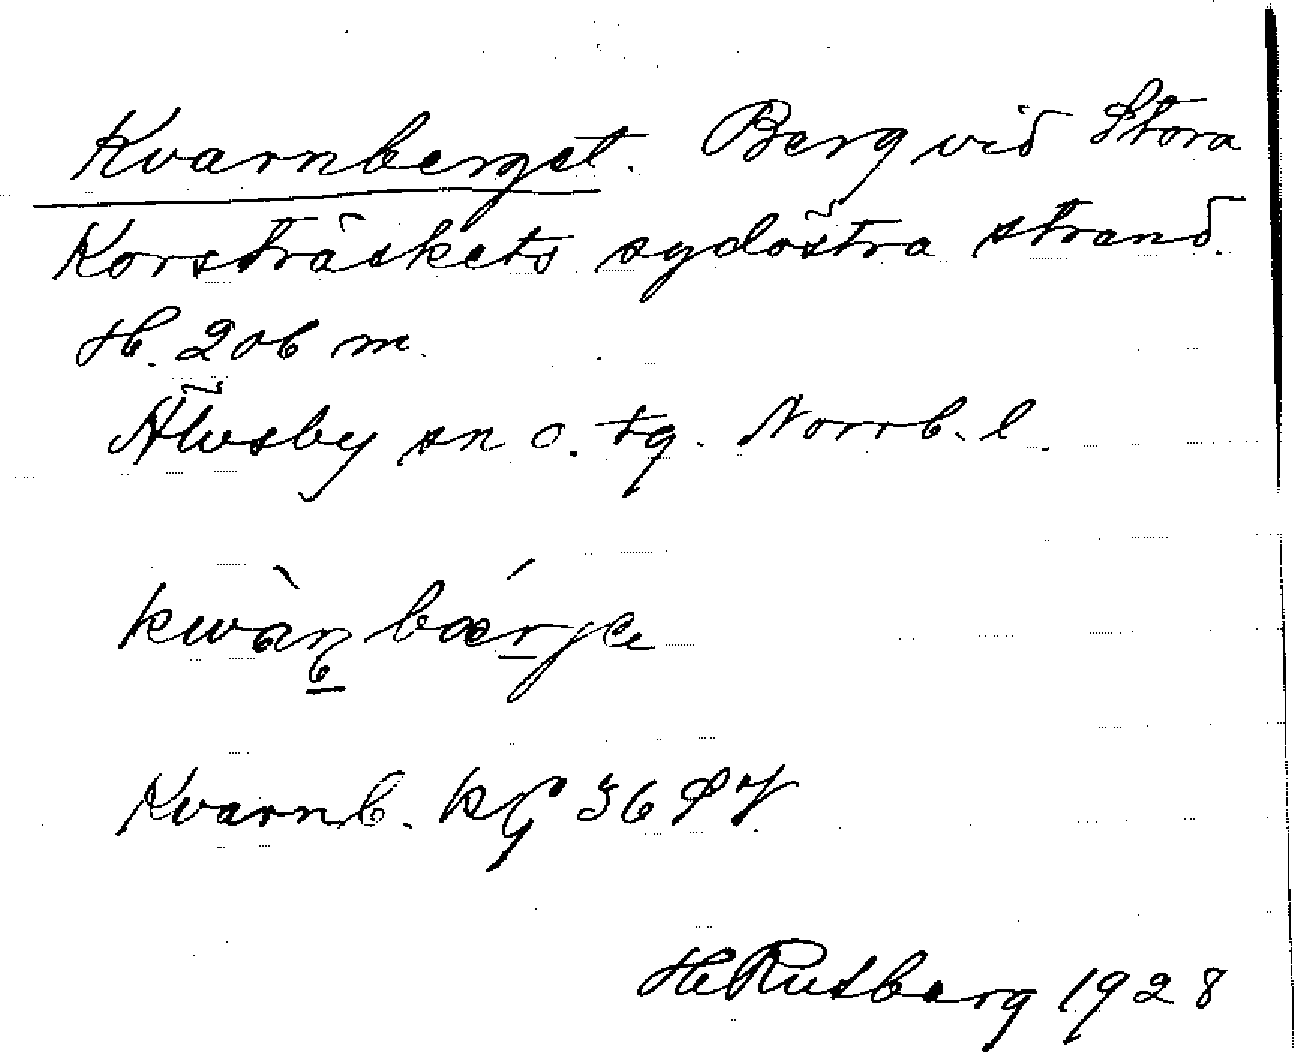 Kvarnberget. Berg vid Stora
Korsträskets sydöstra strand.
H. 206 m.
Älvsby sn o. tg. Norrb. l.
kwàn bærje
Kvarnb. kg 36
H Rutberg 1928